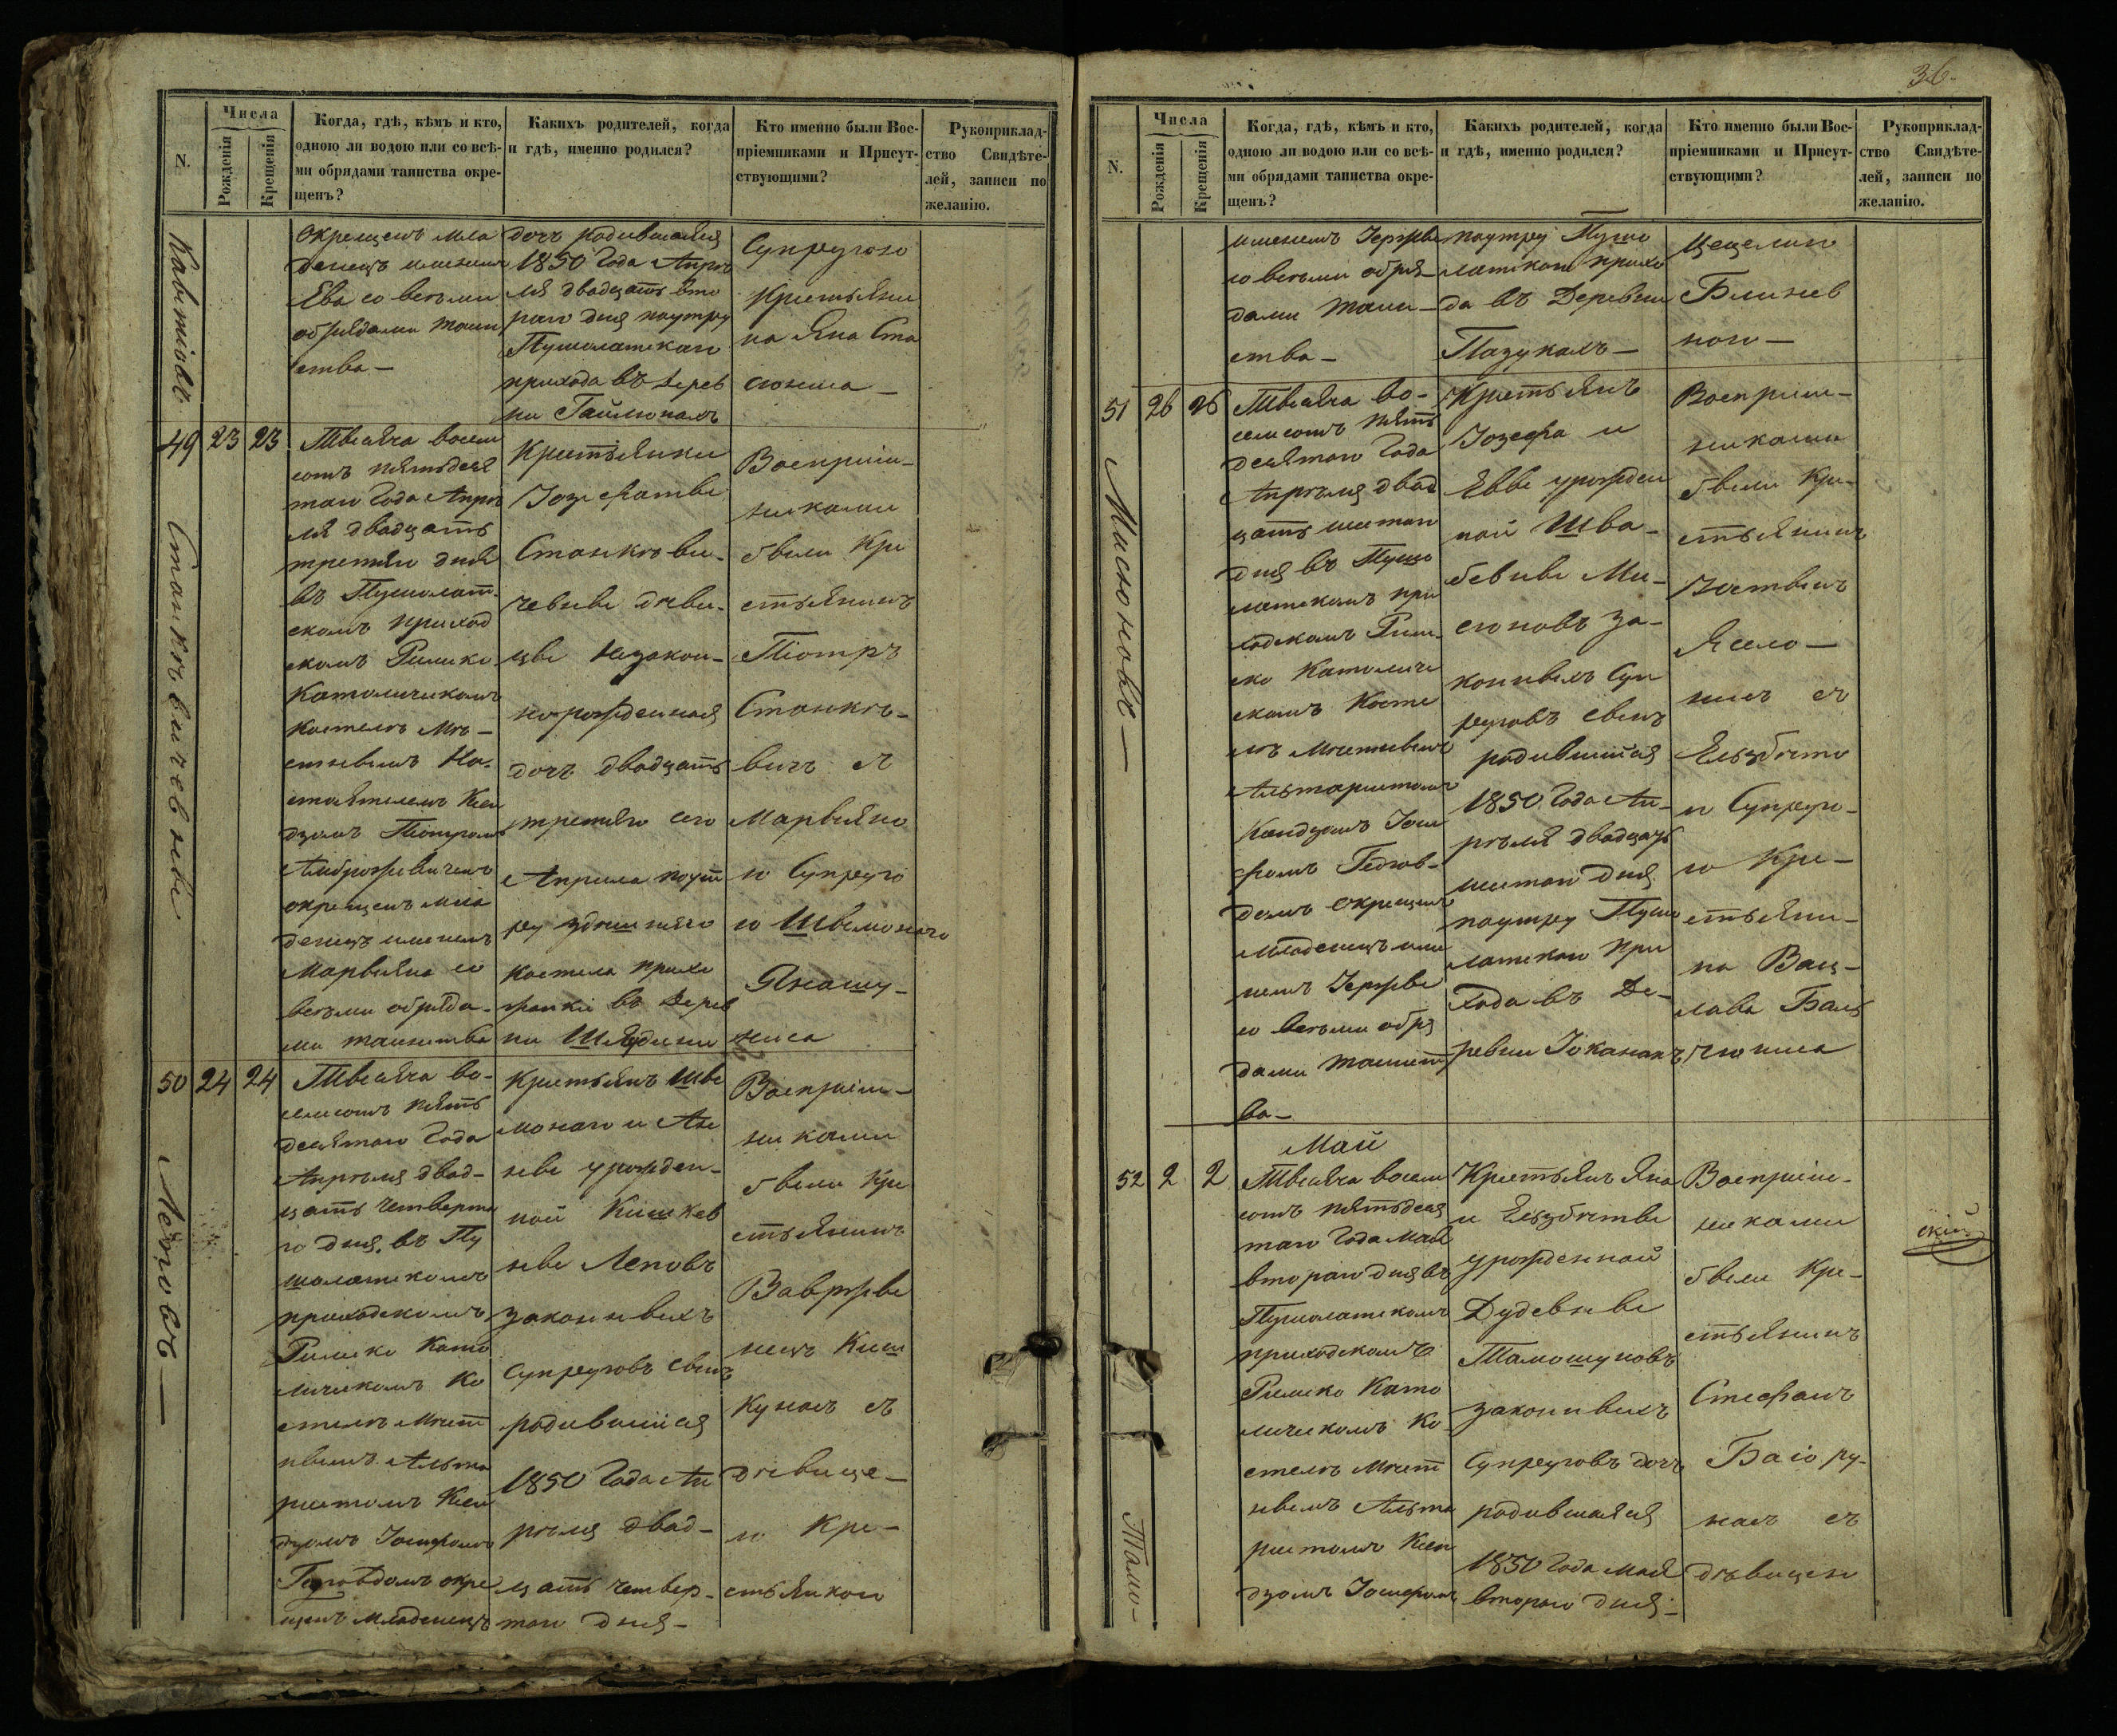 36.
N.
Числа
Рожденія
Крещенія
Когда, гдѣ, кѣмъ и кто,
одною ли водою или со всѣ-
ми обрядами таинства окре-
щенъ?
Какихъ родителей, когда
и гдѣ, именно родился?
Кто именно были Вос-
пріемниками и Присут-
ствующими?
Рукоприклад-
ство Свидѣте-
лей, записи по
желанію.
окрещенъ мла
денецъ именемъ
Ева со всѣми
обрядами таин
ства —
дочь родившаяся
1850 Года Апрѣ
ля двадцать вто
раго дня поутру
Пушолатскаго
прихода въ дерев
ни
Супругою
Крестьяни
на Яна Ста
сюниса —
49
23
23
Станкѣвичевны
Тысяча восем
сотъ пятьдеся
таго Года Апрѣ
ля двадцать
третяго дня
въ Пушолат-
скомъ приход
скомъ Римско
Католическомъ
Костелѣ Мѣ-
стнымъ На-
стоятелемъ Ксен
дзомъ Петромъ
Амброжевичемъ
окрещенъ мла
денецъ именемъ
Марыяна со
всѣми обряда-
ми таинства
Крестьянки
Іозефаты
Станкѣви-
чевны дѣви-
цы незакон-
норожденная
дочь двадцать
третяго сего
Апрѣля поут
ру здѣшняго
костела прихо
жанки въ дерев
ни
Воспріем-
никами
были Кре
стьянинъ
Петръ
Станкѣ-
вичъ съ
Марыяно
ю Супруго
ю Шымонаго
Яношу-
ниса
50
24
24
Леповъ —
Тысяча во-
семсотъ пять
десятаго Года
Апрѣля двад-
цать четверта
го дня въ Пу
шолатскомъ
приходскомъ
Римско Като
лическомъ Ко
стелѣ Мѣст
нымъ Альта
ристомъ Ксен
дзомъ Іосифомъ
окре
щенъ Младенецъ
Крестьянъ Шы
монаго и Ан
ны урожден-
ной Кишкев
ны Леповъ
законныхъ
Супруговъ сынъ
родившійся
1850 Года Ап
рѣля двад-
цать четвер-
таго дня —
Воспріем-
никами
были Кре
стьянинъ
Вавржы
нецъ Киш
кунасъ съ
дѣвице-
ю Кре-
стьянкою
N.
Числа
Рожденія
Крещенія
Когда, гдѣ, кѣмъ и кто,
одною ли водою или со всѣ-
ми обрядами таинства окре-
щенъ?
Какихъ родителей, когда
и гдѣ, именно родился?
Кто именно были Вос-
пріемниками и Присут-
ствующими?
Рукоприклад-
ство Свидѣте-
лей, записи по
желанію.
именемъ Іержы
со всѣми обря-
дами таин-
ства —
поутру Пушо
латскаго прихо
да въ Деревни
Пазукахъ —
Цецелию
51
26
26
Мисюновъ —
Тысяча во-
семсотъ пять
десятаго Года
Апрѣля двад
цать шестаго
дня въ Пушо
латскомъ при
ходскомъ Рим-
ско Католиче
скомъ Косте
лѣ Мѣстнымъ
Альтаристомъ
Ксендзомъ Іоси
фомъ
окрещенъ
Младенецъ име
немъ Іержы
со всѣми обря
дами таинст
ва —
Крестьянъ
Іозефа и
Евы урожден
ной Шва-
бевны Ми-
сюновъ за-
конныхъ Суп
руговъ сынъ
родившійся
1850 Года Ап-
рѣля двадцать
шестаго дня
поутру Пушо
латскаго при
хода въ Де-
ревни
Воспріем-
никами
были Кре-
стьянинъ
съ
Ельзбѣто
ю Супруго-
ю Кре-
стьяни-
на Вац-
лава Баль
чюниса
Май
52
2
2
Тамо-
Тысяча восем
сотъ пятьдеся
таго Года Мая
втораго дня въ
Пушолатскомъ
приходскомъ
Римско Като
лическомъ Ко-
стелѣ Мѣст
нымъ Альта
ристомъ Ксен
дзомъ Іосифомъ
Крестьянъ Яна
и Ельзбѣты
урожденной
Дудевны
Тамошуновъ
законныхъ
Супруговъ дочь
родившаяся
1850 Года Мая
втораго дня —
Воспріем-
никами
были Кре-
стьянинъ
Стефанъ
Баіору-
насъ съ
дѣвицею
скій